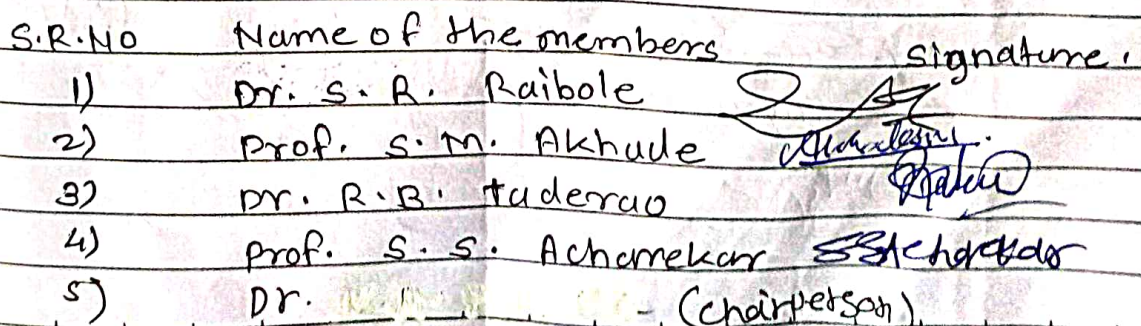 S.R.NO Name of the members Signature.
1) Dr. S. R. Raibole
2) Prof. S. M. Akhude
3) Dr. R. B. taderao
4) Prof. S. S. Acharrekar
5) Dr. - (Chairperson)